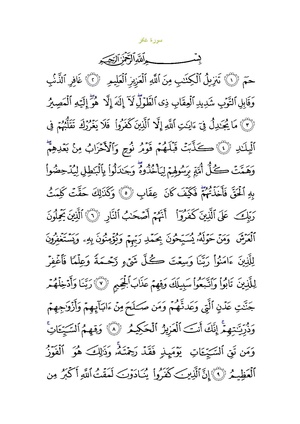 سورة غافر
بِسْمِ اللَّهِ الرَّحْمَٰنِ الرَّحِيمِ
حمٓ ١ تَنزِيلُ ٱلْكِتَٰبِ مِنَ ٱللَّهِ ٱلْعَزِيزِ ٱلْعَلِيمِ ٢ غَافِرِ ٱلذَّنۢبِ
وَقَابِلِ ٱلتَّوْبِ شَدِيدِ ٱلْعِقَابِ ذِى ٱلطَّوْلِ لَآ إِلَٰهَ إِلَّا هُوَ إِلَيْهِ ٱلْمَصِيرُ
٣ مَا يُجَٰدِلُ فِىٓ ءَايَٰتِ ٱللَّهِ إِلَّا ٱلَّذِينَ كَفَرُوا۟ فَلَا يَغْرُرْكَ تَقَلُّبُهُمْ فِى
ٱلْبِلَٰدِ ٤ كَذَّبَتْ قَبْلَهُمْ قَوْمُ نُوحٍ وَٱلْأَحْزَابُ مِنۢ بَعْدِهِمْ
وَهَمَّتْ كُلُّ أُمَّةٍۭ بِرَسُولِهِمْ لِيَأْخُذُوهُ وَجَٰدَلُوا۟ بِٱلْبَٰطِلِ لِيُدْحِضُوا۟
بِهِ ٱلْحَقَّ فَأَخَذْتُهُمْ فَكَيْفَ كَانَ عِقَابِ ٥ وَكَذَٰلِكَ حَقَّتْ كَلِمَتُ
رَبِّكَ عَلَى ٱلَّذِينَ كَفَرُوٓا۟ أَنَّهُمْ أَصْحَٰبُ ٱلنَّارِ ٦ ٱلَّذِينَ يَحْمِلُونَ
ٱلْعَرْشَ وَمَنْ حَوْلَهُۥ يُسَبِّحُونَ بِحَمْدِ رَبِّهِمْ وَيُؤْمِنُونَ بِهِۦ وَيَسْتَغْفِرُونَ
لِلَّذِينَ ءَامَنُوا۟ رَبَّنَا وَسِعْتَ كُلَّ شَىْءٍ رَّحْمَةً وَعِلْمًا فَٱغْفِرْ
لِلَّذِينَ تَابُوا۟ وَٱتَّبَعُوا۟ سَبِيلَكَ وَقِهِمْ عَذَابَ ٱلْجَحِيمِ ٧ رَبَّنَا وَأَدْخِلْهُمْ
جَنَّٰتِ عَدْنٍ ٱلَّتِى وَعَدتَّهُمْ وَمَن صَلَحَ مِنْ ءَابَآئِهِمْ وَأَزْوَٰجِهِمْ
وَذُرِّيَّٰتِهِمْ إِنَّكَ أَنتَ ٱلْعَزِيزُ ٱلْحَكِيمُ ٨ وَقِهِمُ ٱلسَّيِّـَٔاتِ
وَمَن تَقِ ٱلسَّيِّـَٔاتِ يَوْمَئِذٍ فَقَدْ رَحِمْتَهُۥ وَذَٰلِكَ هُوَ ٱلْفَوْزُ
ٱلْعَظِيمُ ٩ إِنَّ ٱلَّذِينَ كَفَرُوا۟ يُنَادَوْنَ لَمَقْتُ ٱللَّهِ أَكْبَرُ مِن